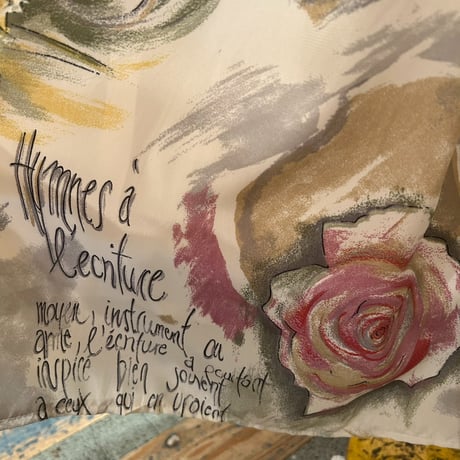 Hymnes à
l'écriture
moyen, instrument ou
amie, l'écriture a pourtant
inspiré bien souvent
à ceux qui